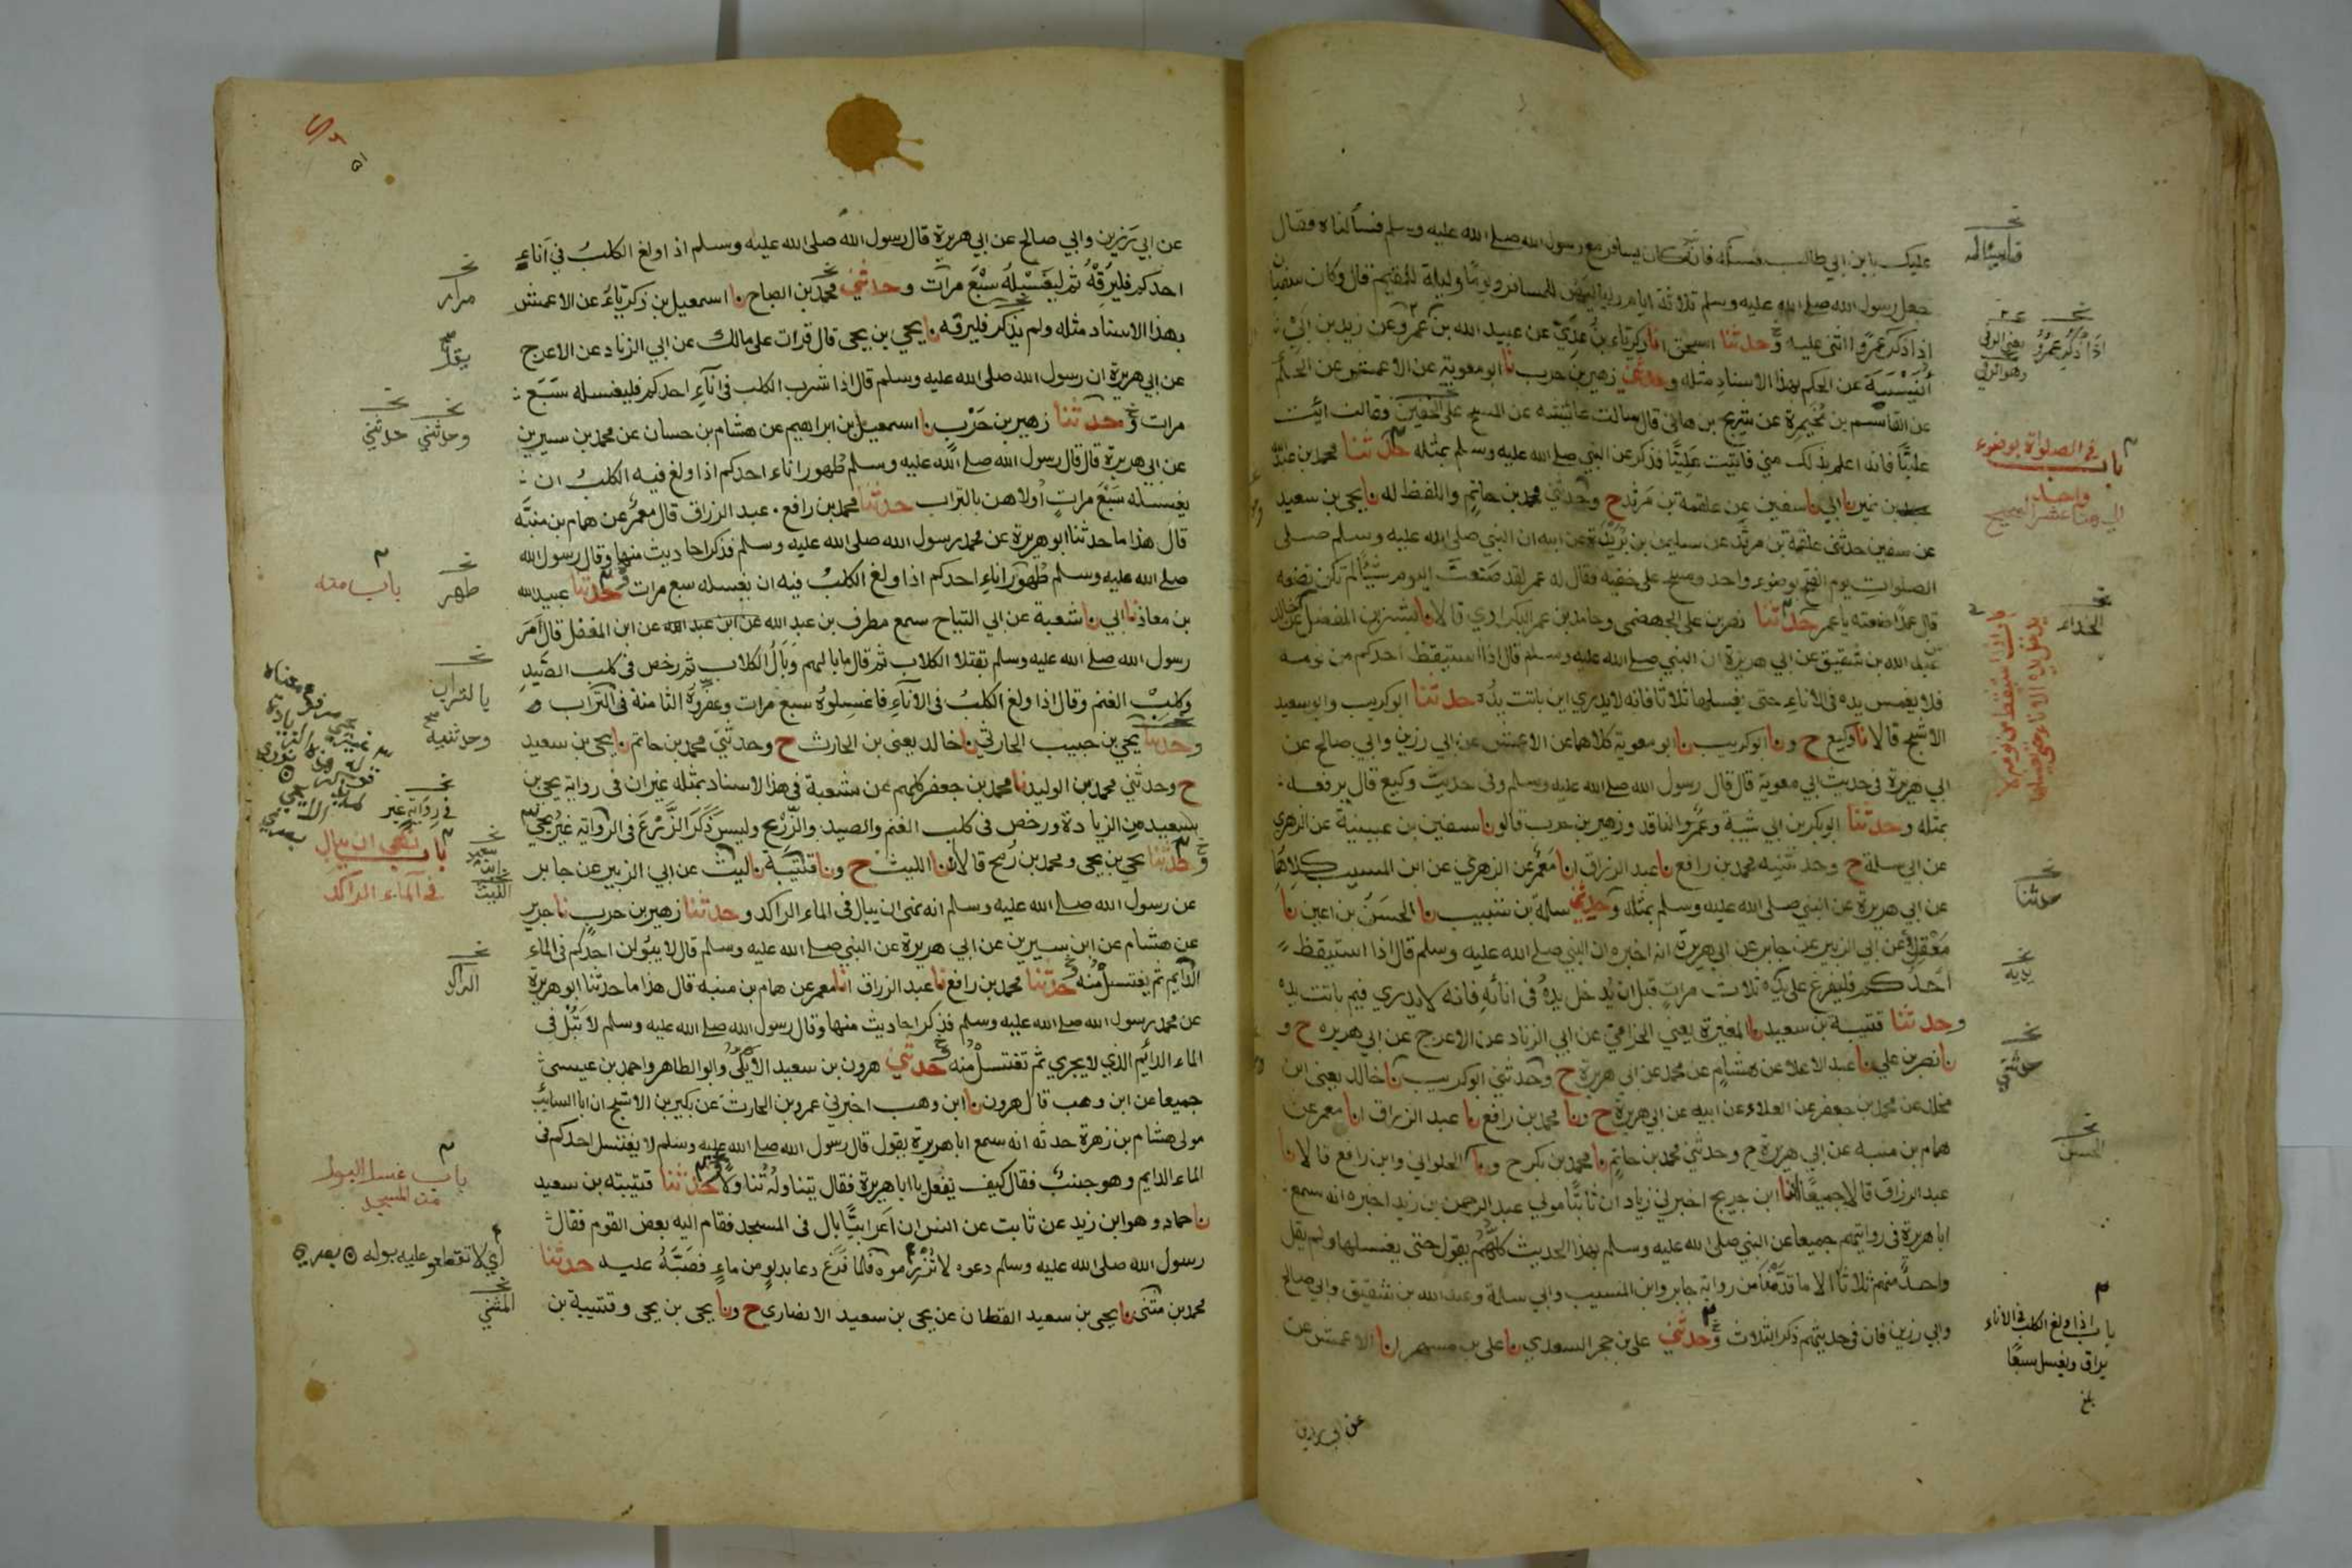 عليك بابن ابي طالب فسله فانه كان يسافر مع رسول الله صلى الله عليه وسلم فسألناه فقال
جعل رسول الله صلى الله عليه وسلم ثلاثة ايام ولياليهن للمسافر ويوما وليلة للمقيم قال وكان سفيان
اذا ذكر عمرًوا اثنى عليه وحدثنا اسحق انا زكرياء بن عدي عن عبيد الله بن عمرو عن زيد بن ابي
أنيسة عن الحكم بهذا الاسناد مثله وحدثني زهير بن حرب نا ابو معوية عن الاعمش عن الحكم
عن القاسم بن مخيمرة عن شريح بن هانئ قال سالت عائشة عن المسح على الخفين فقالت ائت
عليًّا فانه اعلم بذلك مني فاتيت عليًّا فذكر عن النبي صلى الله عليه وسلم بمثله حدثنا محمد بن عبد الله
بن نمير نا ابي نا سفين عن علقمة بن مرثد ح وحدثني محمد بن حاتم واللفظ له نا يحيى بن سعيد
عن سفين حدثني علقمة بن مرثد عن سليمن بن بريدة عن ابيه ان النبي صلى الله عليه وسلم صلى
الصلوات يوم الفتح بوضوء واحد ومسح على خفيه فقال له عمر لقد صنعت اليوم شيئًا لم تكن تصنعه
قال عمدًا صنعته يا عمر حدثنا نصر بن علي الجهضمي وحامد بن عمر البكراوي قالا نا بشر بن المفضل عن خالد
عن عبد الله بن شقيق عن ابي هريرة ان النبي صلى الله عليه وسلم قال اذا استيقظ احدكم من نومه
فلا يغمس يده في الاناء حتى يغسلها ثلاثا فانه لا يدري اين باتت يده حدثنا ابو كريب وابو سعيد
الاشج قالا نا وكيع ح ونا ابو كريب نا ابو معوية كلاهما عن الاعمش عن ابي رزين وابي صالح عن
ابي هريرة في حديث ابي معوية قال قال رسول الله صلى الله عليه وسلم وفي حديث وكيع قال يرفعه
بمثله وحدثنا ابو بكر بن ابي شيبة وعمرو الناقد وزهير بن حرب قالو نا سفين بن عيينة عن الزهري
عن ابي سلمة ح وحدثنيه محمد بن رافع نا عبد الرزاق انا معمر عن الزهري عن ابن المسيب كلاهما
عن ابي هريرة عن النبي صلى الله عليه وسلم بمثله وحدثني سلمة بن شبيب نا الحسن بن اعين نا
معقل عن ابي الزبير عن جابر عن ابي هريرة انه اخبره ان النبي صلى الله عليه وسلم قال اذا استيقظ
احدكم فليفرغ على يده ثلاث مرات قبل ان يدخل يده في انائه فانه لا يدري فيم باتت يده
وحدثنا قتيبة بن سعيد نا المغيرة يعني الحزامي عن ابي الزناد عن الاعرج عن ابي هريره ح و
نا نصر بن علي نا عبد الاعلا عن هشام عن محمد عن ابي هريرة ح وحدثني ابو كريب نا خالد يعني ابن
مخلد عن محمد بن جعفر عن العلاء عن ابيه عن ابي هريرة ح ونا محمد بن رافع نا عبد الرزاق انا معمر عن
همام بن منبه عن ابي هريرة ح وحدثني محمد بن حاتم نا محمد بن بكر ح ونا الحلواني وابن رافع قالا نا
عبد الرزاق قالا جميعًا انا ابن جريج اخبرني زياد ان ثابتًا مولى عبد الرحمن بن زيد اخبره انه سمع
ابا هريرة في روايتهم جميعا عن النبي صلى الله عليه وسلم بهذا الحديث كلهم يقول حتى يغسلها ولم يقل
واحد منهم ثلاثا الا ما قدمنا من رواية جابر وابن المسيب وابي سلمة وعبد الله بن شقيق وابي صالح
وابي رزين فان في حديثهم ذكر الثلاث وحدثني علي بن حجر السعدي نا علي بن مسهر انا الاعمش عن
عن ابي رزين
باب في الصلواة بوضوء
واحد
الحذاء
حدثنا
يديه
حدثني
الحسن
باب اذا ولغ الكلب في الاناء
يراق ويغسل سبعًا
بلغ
عن ابي رزين وابي صالح عن ابي هريرة قال رسول الله صلى الله عليه وسلم اذا ولغ الكلب في اناء
احدكم فليرقه ثم ليغسله سبع مرات وحدثني محمد بن الصباح نا اسمعيل بن زكرياء عن الاعمش
بهذا الاسناد مثله ولم يذكر فليرقه نا يحيي بن يحيى قال قرات على مالك عن ابي الزناد عن الاعرج
عن ابي هريرة ان رسول الله صلى الله عليه وسلم قال اذا شرب الكلب في اناء احدكم فليغسله سبع
مرات وحدثنا زهير بن حرب نا اسمعيل بن ابراهيم عن هشام بن حسان عن محمد بن سيرين
عن ابي هريرة قال قال رسول الله صلى الله عليه وسلم طهور اناء احدكم اذا ولغ فيه الكلب ان
يغسله سبع مرات أولاهن بالتراب حدثنا محمد بن رافع عبد الرزاق قال معمر عن همام بن منبه
قال هذا ما حدثنا ابو هريرة عن محمد رسول الله صلى الله عليه وسلم فذكر احاديث منها وقال رسول الله
صلى الله عليه وسلم طهور اناء احدكم اذا ولغ الكلب فيه ان يغسله سبع مرات وحدثنا عبيد الله
بن معاذ نا ابي نا شعبة عن ابي التياح سمع مطرف بن عبد الله عن ابن عبد الله عن ابن المغفل قال أمر
رسول الله صلى الله عليه وسلم بقتلا الكلاب ثم قال ما بالهم وبال الكلاب ثم رخص في كلب الصيد
وكلب الغنم وقال اذا ولغ الكلب في الاناء فاغسلوه سبع مرات وعفروه الثامنة في التراب
وحدثنا يحيي بن حبيب الحارثي نا خالد يعني بن الحارث ح وحدثني محمد بن حاتم نا يحيى بن سعيد
ح وحدثني محمد بن الوليد نا محمد بن جعفر كلهم عن شعبة في هذا الاسناد بمثله غير ان في رواية يحيى بن
سعيد من الزيادة ورخص في كلب الغنم والصيد والزرع وليس ذكر الزرع في الرواية غير يحيى
وحدثنا يحيى بن يحيى ومحمد بن رمح قالا انا الليث ح ونا قتيبة نا ليث عن ابي الزبير عن جابر
عن رسول الله صلى الله عليه وسلم انه نهى ان يبال في الماء الراكد وحدثنا زهير بن حرب نا جرير
عن هشام عن ابن سيرين عن ابي هريرة عن النبي صلى الله عليه وسلم قال لا يبولن احدكم في الماء
الدايم ثم يغتسل منه وحدثنا محمد بن رافع نا عبد الرزاق انا معمر عن همام بن منبه قال هذا ما حدثنا ابو هريرة
عن محمد رسول الله صلى الله عليه وسلم فذكر احاديث منها وقال رسول الله صلى الله عليه وسلم لا تبل في
الماء الدائم الذي لا يجري ثم تغتسل منه وحدثني هرون بن سعيد الأيلي وابو الطاهر واحمد بن عيسى
جميعا عن ابن وهب قال هرون نا ابن وهب اخبرني عمرو بن الحارث عن بكير بن الاشج ان ابا السائب
مولى هشام بن زهرة حدثه انه سمع ابا هريرة يقول قال رسول الله صلى الله عليه وسلم لا يغتسل احدكم في
الماء الدايم وهو جنب فقال كيف يفعل يا ابا هريرة فقال يتناوله تناولا حدثنا قتيبته بن سعيد
نا حماد وهو ابن زيد عن ثابت عن انس ان اعرابيًّا بال في المسجد فقام اليه بعض القوم فقال
رسول الله صلى الله عليه وسلم دعوه لا تزرموه فلما فرغ دعا بدلو من ماء فصبه عليه حدثنا
محمد بن مثنى نا يحيى بن سعيد القطان عن يحيى بن سعيد الانصاري ح ونا يحيى بن يحيى وقتيبة بن
مرار
يقل
وحدثني حدثني
باب منه
طهر
بالتراب
وحدثنيه
في رواية غير
باب نهى ان يبال
في الماء الراكد
الراكد
باب غسل البول
من المسجد
اي لا تقطعو عليه بوله
المثنى